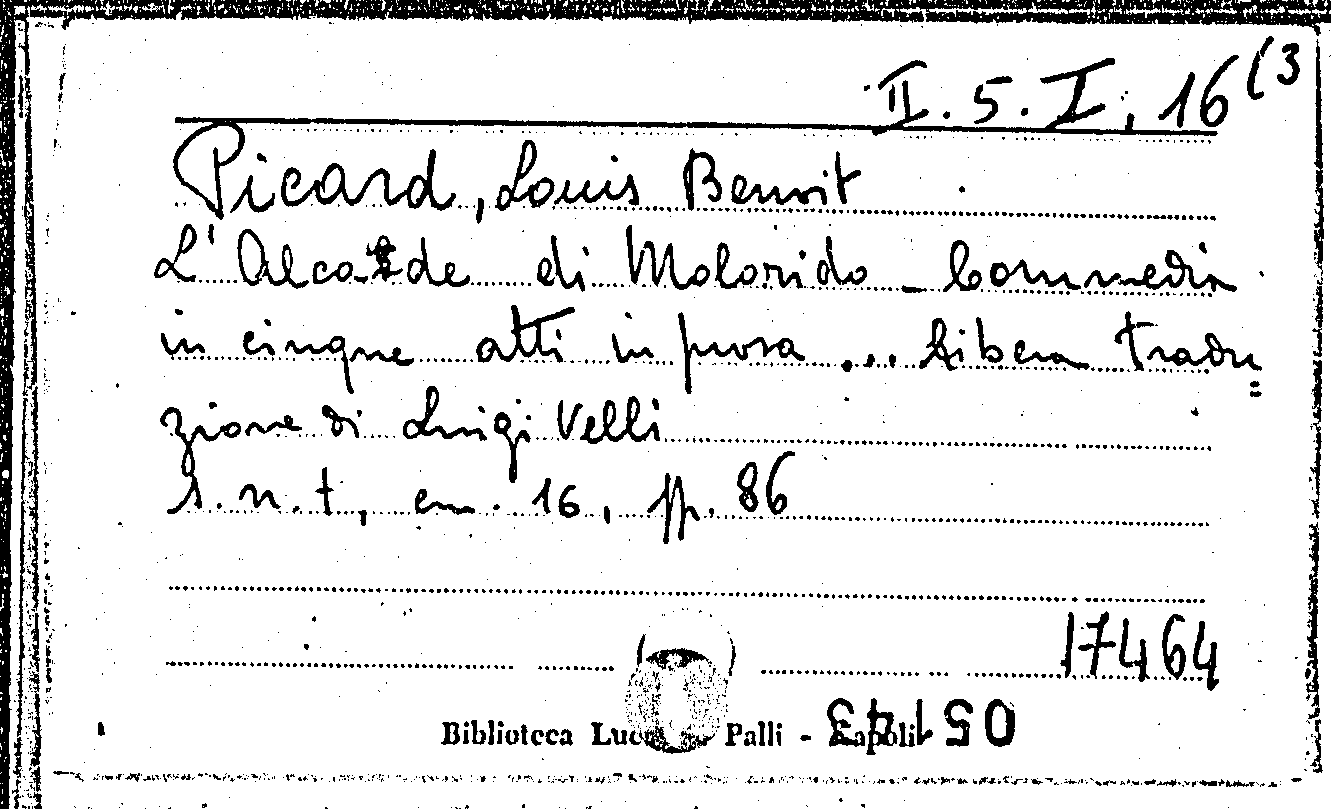 II. 5. I, 16 (3
Picard, Louis Benoit
L'Alcade di Molorido - Commedia
in cinque atti in prosa ... Libera tradu=
zione di Luigi Velli
s.n.t., cm. 16, pp. 86
17464
Biblioteca Palli - Napoli